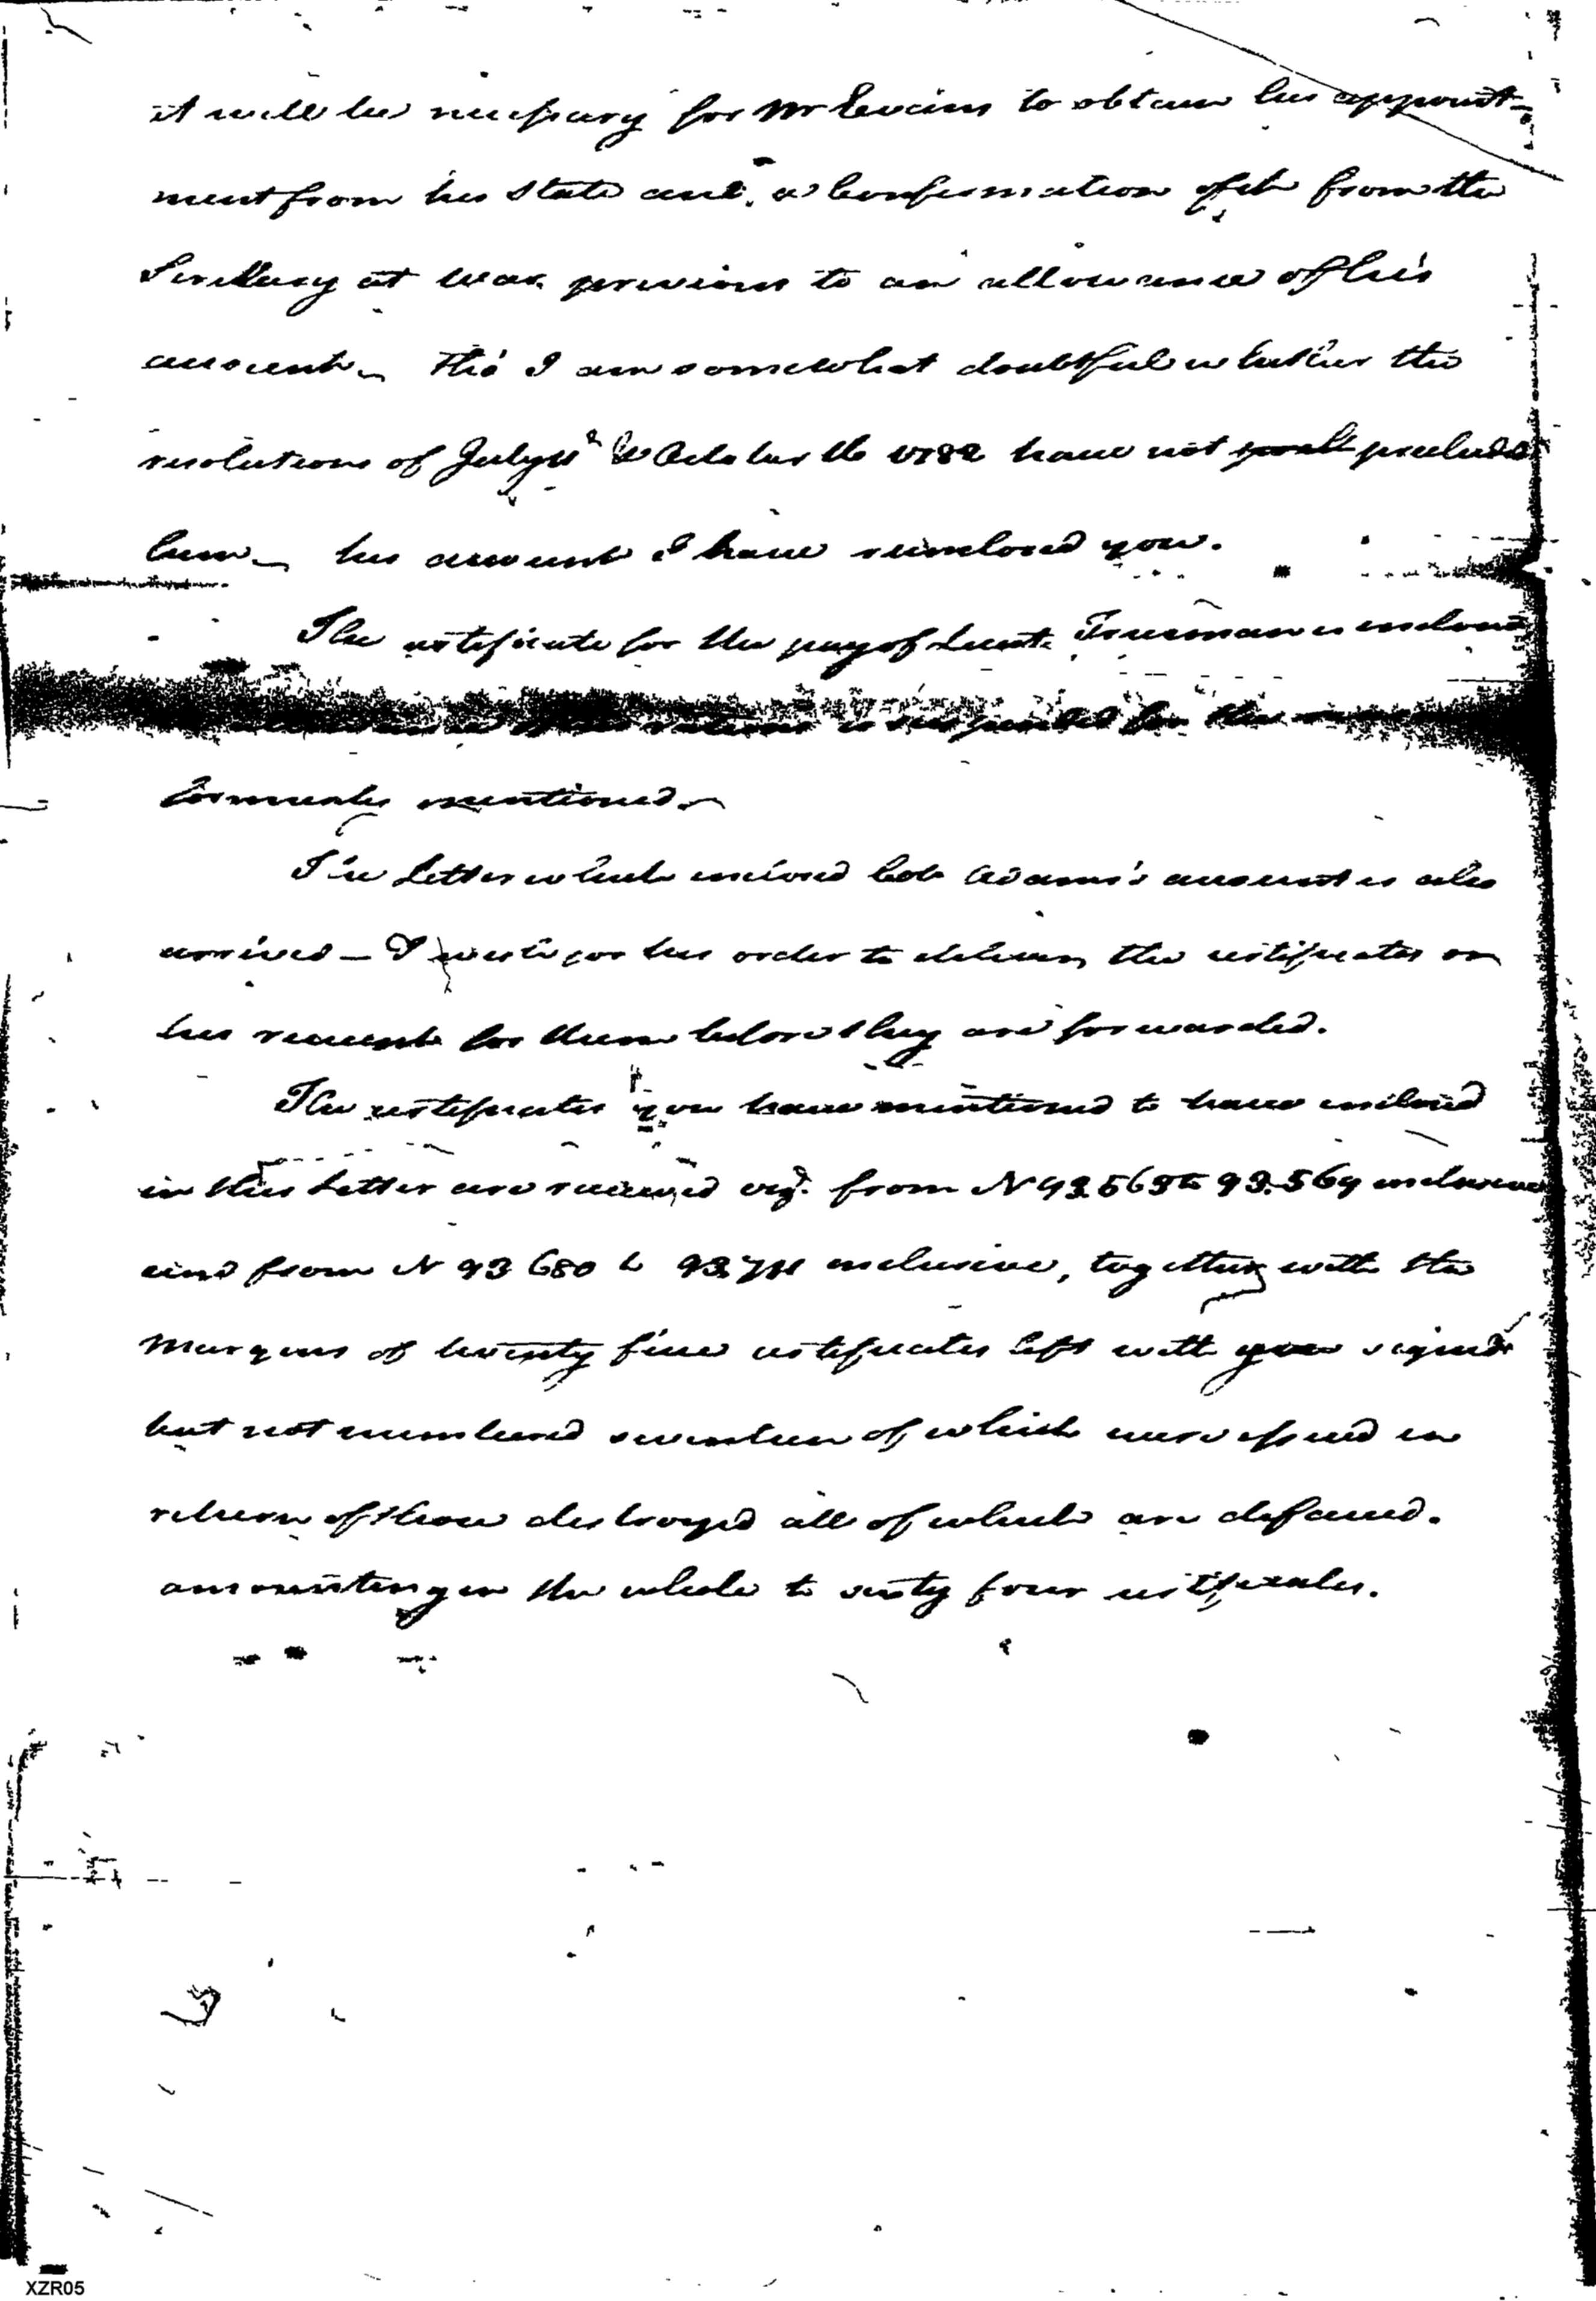 it will be necessary for Mr Evans to obtain his appoint-
ment from his State and a Confirmation of it from the
Secretary at War previous to an allowance of his
account – tho' I am somewhat doubtful whether the
resolutions of July & October 1782 have not precluded
him – his account I have reinclosed you.
The certificate for the pay of Lieut. Truman is inclosed
is suspended for the
formerly mentioned. –
The Letter which inclosed Col. Adams's account is also
arrived – I wish for his order to deliver the certificates or
his receipt for them before they are forwarded.
The certificates you have mentioned to have inclosed
in this Letter are received viz. from N 93.563 to 93.569 inclusive
and from N 93 680 to 93.711 inclusive, together with the
Margins of twenty five certificates left with you signed
but not numbered seventeen of which were issued in
return of those destroyed all of which are defaced.
amounting in the whole to sixty four certificates.
XZR05